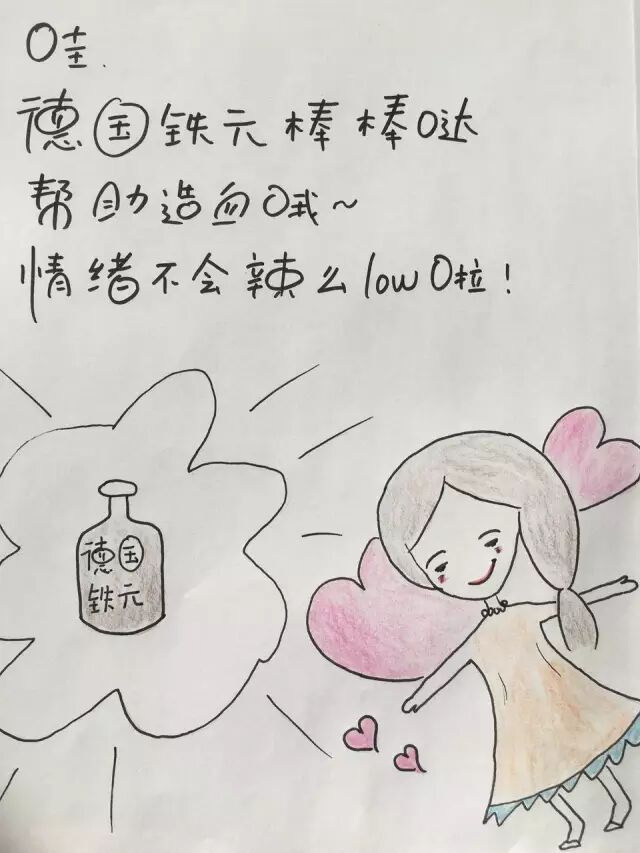 哇.
德国铁元棒棒哒
帮助造血哦~
情绪不会辣么low啦!
德国
铁元